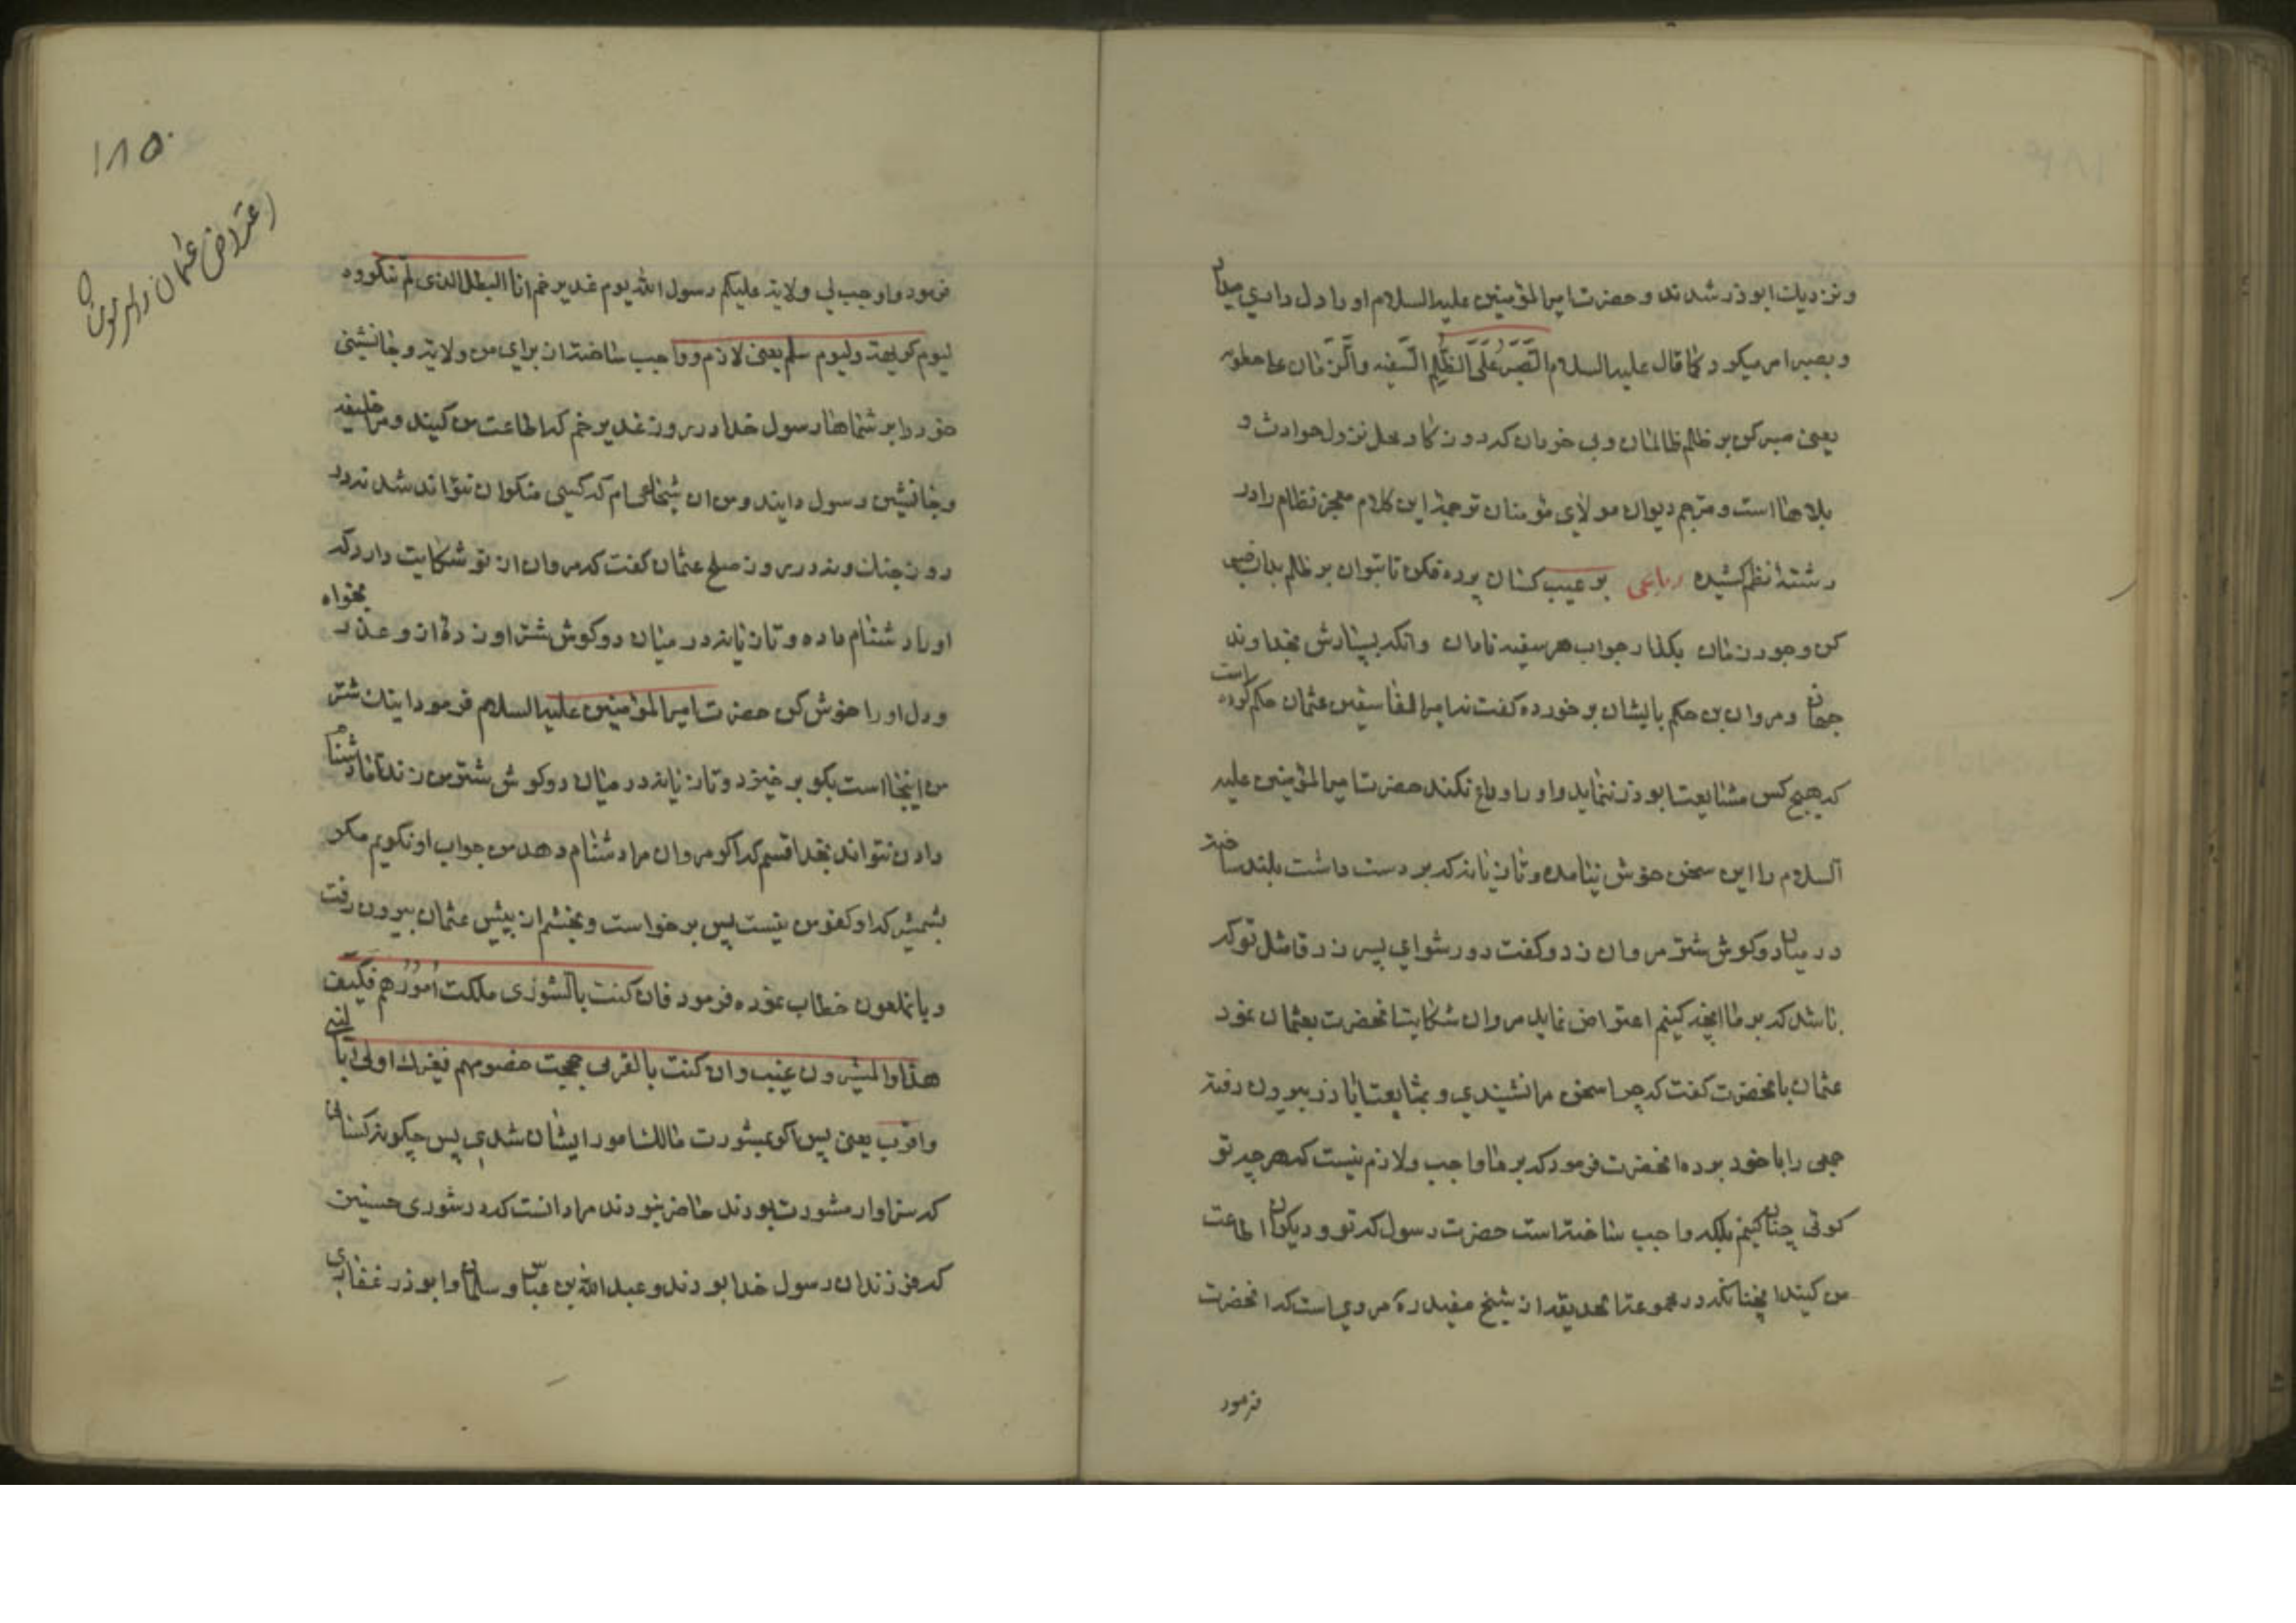 و نزدیك ابوذر شدند و حضرت امیرالمؤمنین علیه السلام او را دل داری میداد
و بصبر امر میکرد کما قال علیه السلام اَلصَّبرُ عَلَی الظُّلمِ السَّفیه و
یعنی صبر کن بر ظلم ظالمان و بی خردان که روزکار محل نزول حوادث و
بلاها است و مترجم دیوان مولای مؤمنان ترجمهٔ این کلام معجز نظام را در
رشتهٔ نظم کشیده رباعی بر عیب کسان پرده فکن تا بتوان بر ظلم بدان صبر
کن و جور زمان بکذار جواب هر سفیه نادان وانکه بسپارش بخداوند
جهان و مروان بن حکم بایشان برخورده کفت نه امیرالفاسقین عثمان حکم کرده است
که هیچ کس مشایعت ابوذر ننماید و او را وداع نکند حضرت امیرالمؤمنین علیه
السلام را این سخن خوش نیامده و تازیانه که بر دست داشت بلند ساخته
در میان دو کوش شتر مروان زد و کفت دور شو ای پسر زرقا مثل تو که
باشد که بر ما انچه کنیم اعتراض نماید مروان شکایت انحضرت بعثمان نمود
عثمان بانحضرت کفت که چرا سخن مرا نشنیدی و بمشایعت اباذر بیرون رفته
جمعی را با خود برده انحضرت فرمود که بر ما واجب و لازم نیست که هر چه تو
کوئی چنان کنیم بلکه واجب ساخته است حضرت رسول که تو و دیکران اطاعت
من کنید انچنانکه در مجموعهٔ الحدیقه از شیخ مفید ره مروی است که انحضرت
فرمود
۱۸۵
اعتراض عثمان
فرمود و اوجب لی ولایته علیکم رسول الله یوم غدیر خم انا البطل الذی لم تنکروه
لیوم کریهة و لیوم سلم یعنی لازم و واجب ساخته از برای من ولایة و جانشینی
خود را بر شماها رسول خدا در روز غدیر خم که اطاعت من کنید و مرا خلیفه
و جانشین رسول دانید و من ان شجاعی ام که کسی منکر ان نتواند شد نه در
روز جنك و نه در روز صلح عثمان کفت که مروان از تو شکایت دارد که
او را دشنام داده و تازیانه در میان دو کوش شتر او زدهٔ از و عذر بخواه
و دل او را خوش کن حضرت امیرالمؤمنین علیه السلام فرمود اینك شتر
من اینجا است بکو بر خیزد و تازیانه در میان دو کوش شتر من زند اما دشنام
دادن نتواند بخدا قسم که اکر مروان مرا دشنام دهد من جواب او نکویم مکر
بشمشیر که او کفو من نیست پس برخواست و بخشم از پیش عثمان بیرون رفت
و بانملعون خطاب نموده فرمود فان کنت بالشوری ملکت اُمُورَهُم فکَیفَ
هذا والمشیرون غیب و ان کنت بالقربی حججت خصومهم فغیرك اولی بالنبی
و اقرب یعنی پس اکر بمشورت مالك امور ایشان شدی پس چکونه کسانی
که سزاوار مشورت بودند حاضر نبودند مراد انست که در شوری حسنین
که فرزندان رسول خدا بودند و عبدالله بن عباس و سلمان و ابوذر غفاری